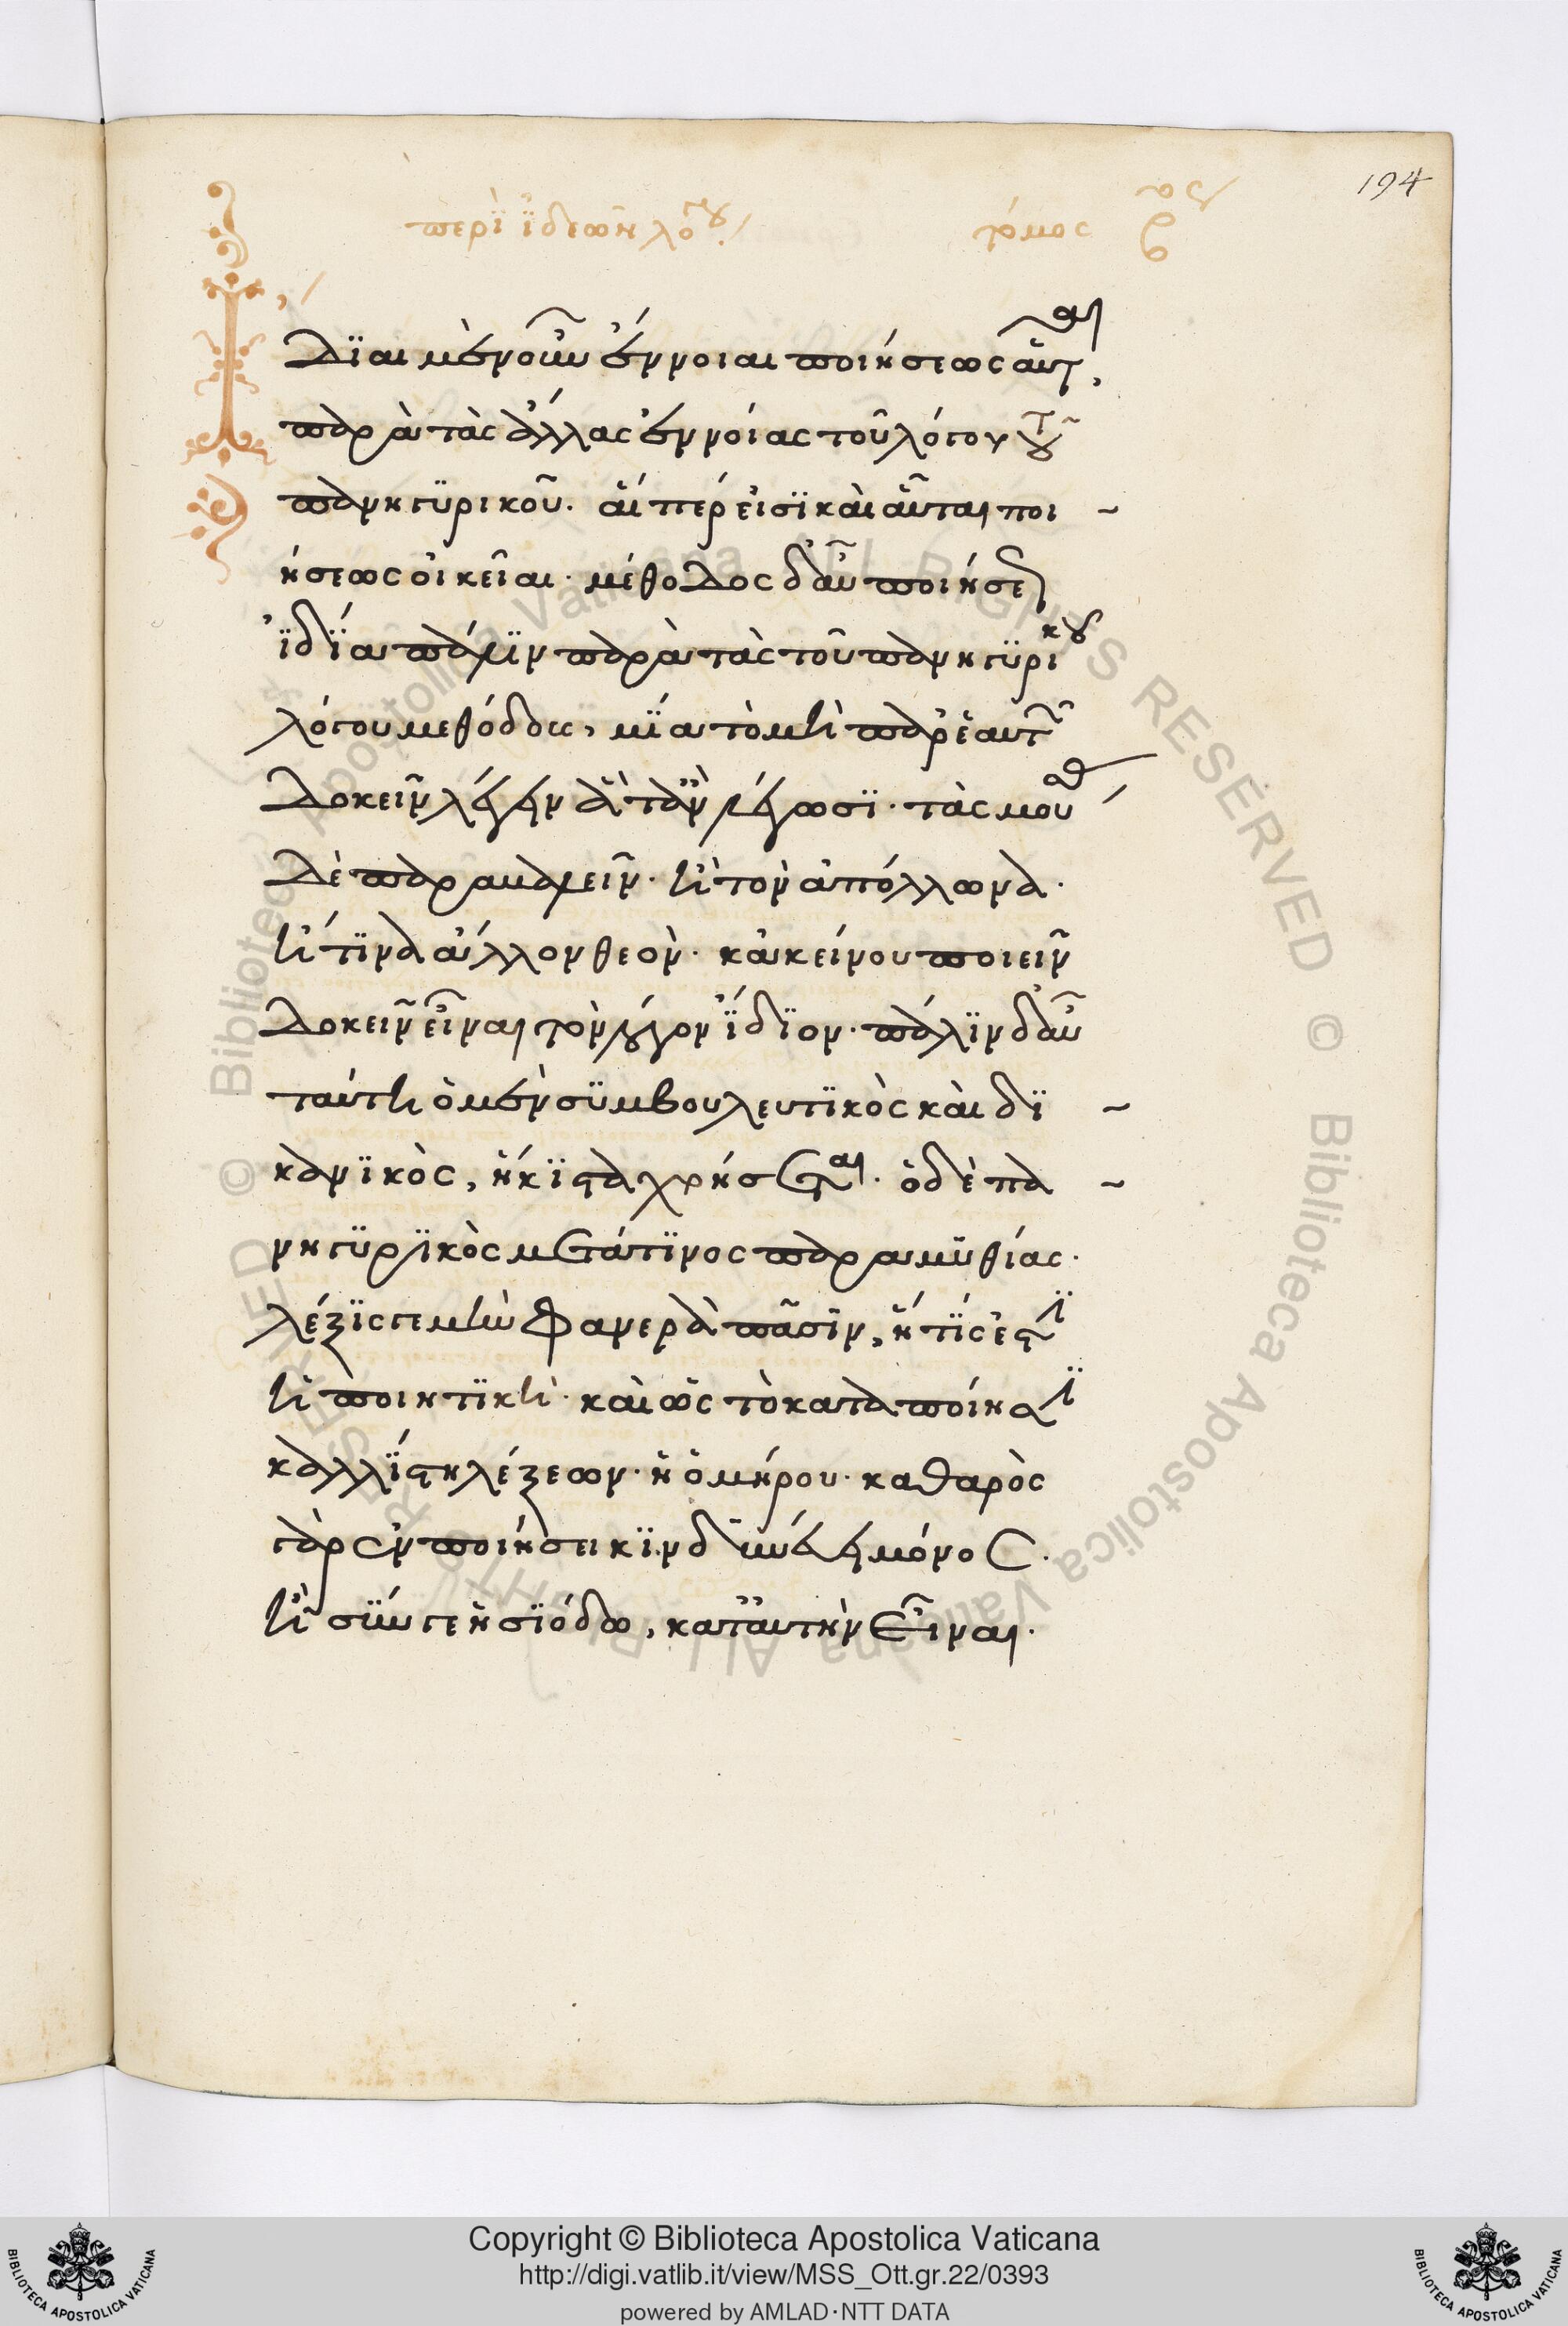 194
περὶ ἰδεῶν λόγου τόμος
Ἴδιαι μὲν οὖν ἔννοιαι ποιήσεως αὗται,
παρὰ τὰς ἄλλας ἐννοίας τοῦ λόγου τοῦ
πανηγυρικοῦ. αἵπερ εἰσὶ καὶ αὗται ποι~
ήσεως οἰκεῖαι. μέθοδος δ' αὖ ποιήσεως
ἰδία πάλιν παρὰ τὰς τοῦ πανηγυρικοῦ
λόγου μεθόδους, μία τὸ μὴ παρ' ἑαυτῶν
δοκεῖν λέγειν ἃ τἂν λέγωσι. τὰς μούσας
δὲ παρακαλεῖν. ἢ τὸν ἀπόλλωνα.
ἤ τινα ἄλλον θεόν. κἀκείνου ποιεῖν
δοκεῖν εἶναι τὸν λόγον ἴδιον. πάλιν δ' αὖ
ταύτη ὁ μὲν συμβουλευτικὸς καὶ δι~
κανικὸς, ἥκιστα χρήσεται. ὁ δὲ πα~
νηγυρικὸς μετά τινος παραμυθίας.
λέξις γε μὴν φανερὰ πᾶσιν, ἥτίς ἐστιν
ἡ ποιητική. καὶ ὡς τὸ κατα ποίησιν
καλλίστη λέξεων. ἡ ὁμήρου. καθαρὸς
γὰρ ἐν ποιήσει κινδυνεύει μόνος.
ἢ σύν γε ἡσιόδω, κατ' αὐτὴν εἶναι.
Copyright © Biblioteca Apostolica Vaticana
http://digi.vatlib.it/view/MSS_Ott.gr.22/0393
powered by AMLAD·NTT DATA
BIBLIOTECA APOSTOLICA VATICANA
BIBLIOTECA APOSTOLICA VATICANA
© Biblioteca Apostolica Vaticana ALL RIGHTS RESERVED © Biblioteca Apostolica Vaticana ALL RIGHTS RESERVED